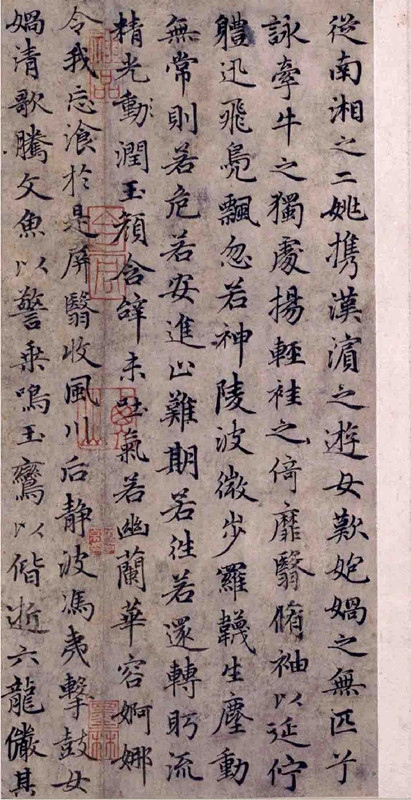 從南湘之二姚携漢濱之遊女歎媧之無匹兮
詠牽牛之獨處揚輕袿之倚靡翳脩袖以延佇
軆迅飛鳧飄忽若神陵波微步羅韈生塵動
無常則若危若安進止難期若往若還轉眄流
精光動潤玉顏含辭未吐氣若幽蘭華容婀娜
令我忘飡於是屏翳收風川后静波馮夷擊鼓女
媧清歌騰文魚以警乘鳴玉鸞以偕逝六龍儼其
神品
墨林